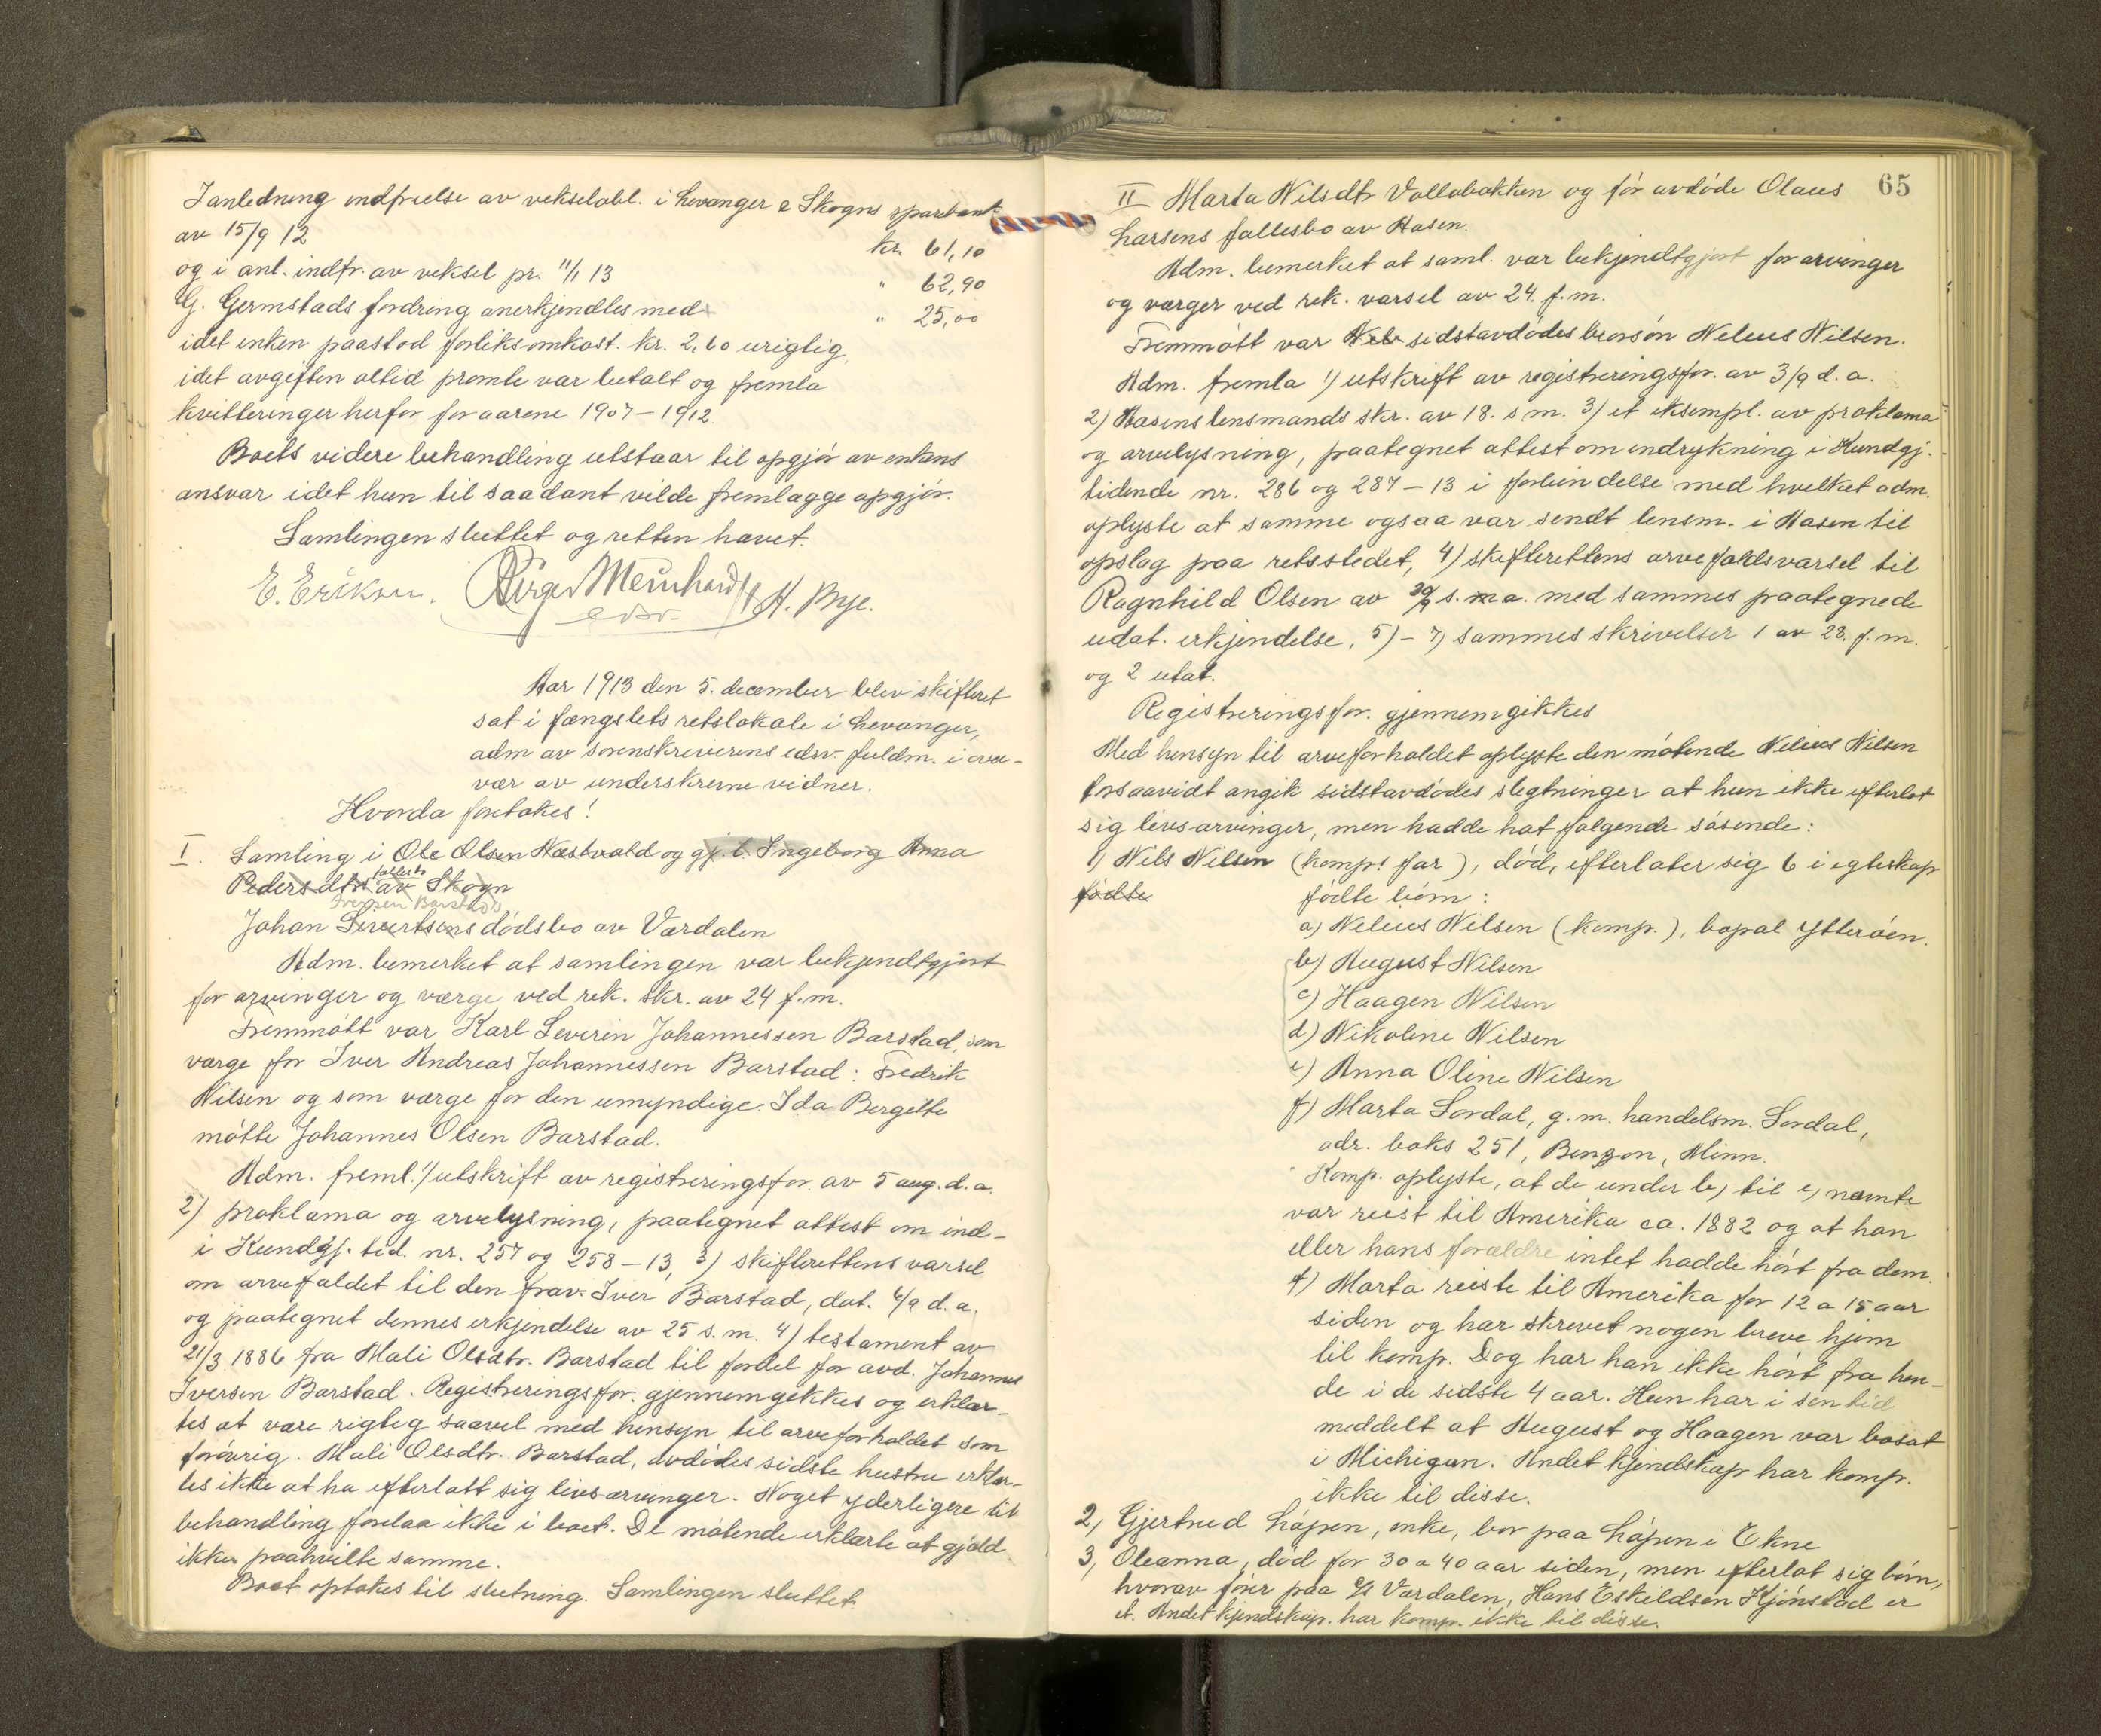 I anledning indfrielse av vekselobl. i Levanger & Skogns sparebank
av 15/9 12 kr. 61,10
og i anl. indfr. av veksel pr. 11/1 13 " 62,90
G. Germstads fordring anerkjendtes med " 25,00
idet enken paastod forliksomkost. kr. 2,60 urigtig,
idet avgiften altid promte var betalt og fremla
kvitteringer herfor for aarene 1907-1912.
Boets videre behandling utstaar til opgjør av enkens
ansvar idet hun til saadant vilde fremlægge opgjør.
Samlingen sluttet og retten hævet.
E. Eriksen. Birger Meinhardt H. Bye.
edsv.
Aar 1913 den 5. december blev skifteret
sat i fængslets retslokale i Levanger,
adm av sorenskriverens edsv. fuldm. i over-
vær av underskrevne vidner.
Hvorda foretokes!
I. Samling i Ole Olsen Næstvold og gj. l. Ingeborg Anna
Pedersdtrs fællesbo av Skogn
Iversen Barstads
Johan Sivertsens dødsbo av Værdalen
Adm. bemerket at samlingen var bekjendtgjort
for arvinger og værge ved rek. skr. av 24 f.m.
Fremmøtt var Karl Severin Johannessen Barstad, som
værge for Iver Andreas Johannessen Barstad: Fredrik
Nilsen og som værge for den umyndige Ida Bergette
møtte Johannes Olsen Barstad.
Adm. freml. 1) utskrift av registreringsfor. av 5 aug. d.a.
2) proklama og arvelysning, paategnet attest om ind-
i Kundgj. tid. nr. 257 og 258-13, 3) skifterettens varsel
om arvefaldet til den frav. Iver Barstad, dat. 4/9 d.a.
og paategnet dennes erkjendelse av 25 s.m. 4) testament av
21/3 1886 fra Mali Olsdtr. Barstad til fordel for avd. Johannes
Iversen Barstad. Registreringsfor. gjennemgikkes og erklær-
tes at være rigtig saavel med hensyn til arveforholdet som
forøvrig. Mali Olsdtr. Barstad, avdødes sidste hustru erklær-
tes ikke at ha efterlatt sig livsarvinger. Noget yderligere til
behandling forelaa ikke i boet. De møtende erklærte at gjæld
ikke paahvilte samme.
Boet optokes til slutning. Samlingen sluttet.
65
II Marta Nilsdtr Vollabakken og før avdøde Olaus
Larsens fællesbo av Aasen.
Adm. bemerket at saml. var bekjendtgjort for arvinger
og værger ved rek. varsel av 24. f.m.
Fremmøtt var sidstavdødes brorsøn Nelius Nilsen.
Adm. fremla 1) utskrift av registreringsfor. av 3/9 d.a.
2) Aasens lensmands skr. av 18. s.m. 3) et eksempl. av proklama
og arvelysning, paategnet attest om indrykning i Kundgj.
tidende nr. 286 og 287-13 i forbindelse med hvilket adm.
oplyste at samme ogsaa var sendt lensm. i Aasen til
opslag paa retsstedet, 4) skifterettens arvefaldsvarsel til
Ragnhild Olsen av 30/9 s. a. med sammes paategnede
udat. erkjendelse, 5)-7) sammes skrivelser 1 av 28. f.m.
og 2 udat.
Registreringsfor. gjennemgikkes
Med hensyn til arveforholdet oplyste den møtende Nelius Nilsen
forsaavidt angik sidstavdødes slegtninger at hun ikke efterlot
sig livsarvinger, men hadde hat følgende søsende:
1) Nils Nilsen (komp.s far), død, efterlater sig 6 i egteskap
fødte fødte børn:
a) Nelius Nilsen (komp.), bopal Ytterøen.
b) August Nilsen
c) Haagen Nilsen
d) Nikoline Nilsen
e) Anna Oline Nilsen
f) Marta Sordal, g.m. handelsm. Sordal,
adr. boks 251, Benson, Minn.
Komp. oplyste, at de under b) til e) nævnte
var reist til Amerika ca. 1882 og at han
eller hans forældre intet hadde hørt fra dem.
f) Marta reiste til Amerika for 12 a 15 aar
siden og har skrevet nogen breve hjem
til komp. Dog har han ikke hørt fra hen-
de i de sidste 4 aar. Hun har i sin tid
meddelt at August og Haagen var bosat
i Michigan. Andet kjendskap har komp.
ikke til disse.
2) Gjertrud Løpen, enke, bor paa Løpen i Ekne
3) Oleanna, død for 30 a 40 aar siden, men efterlot sig børn,
hvorav paa Værdalen, Hans Eskildsen Kjønstad er
et. Andet kjendskap har komp. ikke til disse.